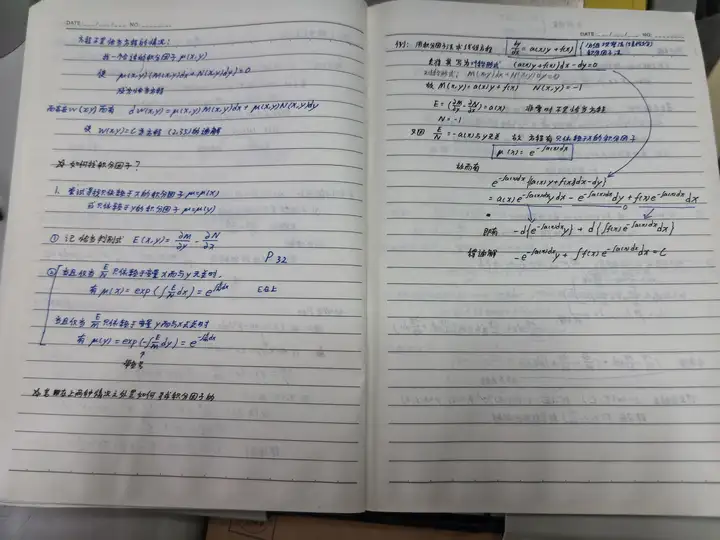 DATE NO.
方程不是恰当方程的情况:
找一个合适的积分因子 μ(x,y)
使 μ(x,y){M(x,y)dx+N(x,y)dy}=0
为恰当方程
W(x,y) 而有 dW(x,y)=μ(x,y)M(x,y)dx+μ(x,y)N(x,y)dy
使 W(x,y)=C 是方程 (2.33) 的通解
如何找积分因子?
1. 尝试寻找只依赖于x的积分因子 μ=μ(x)
或只依赖于y的积分因子 μ=μ(y)
① 记 恰当判别式 E(x,y)=∂M/∂y-∂N/∂x
P32
② 当且仅当 E/N 只依赖于变量x而与y无关时.
有 μ(x)=exp(∫E/N dx)=e^{∫E/N dx} E在上
当且仅当 E/M 只依赖于变量y而与x无关时
有 μ(y)=exp(-∫E/M dy)=e^{-∫E/M dy}
有负号
上两种情况之外是如何寻找积分因子的
DATE NO.
例: 用积分因子法求线性方程 dy/dx=a(x)y+f(x)
积分因子法
先将其写为对称形式 (a(x)y+f(x))dx-dy=0
对称形式: M(x,y)dx+N(x,y)dy=0
故 M(x,y)=a(x)y+f(x) N(x,y)=-1
E=(∂M/∂y-∂N/∂x)=a(x) 非零时不是恰当方程
N=-1
只因 E/N=-a(x) 与y无关 故 方程有只依赖于x的积分因子
μ(x)=e^{-∫a(x)dx}
从而有
e^{-∫a(x)dx}{(a(x)y+f(x))dx-dy}
=a(x)e^{-∫a(x)dx}ydx-e^{-∫a(x)dx}dy+f(x)e^{-∫a(x)dx}dx
即有 -d{e^{-∫a(x)dx}y}+d{∫f(x)e^{-∫a(x)dx}dx}
得通解 -e^{-∫a(x)dx}y+∫f(x)e^{-∫a(x)dx}dx=C